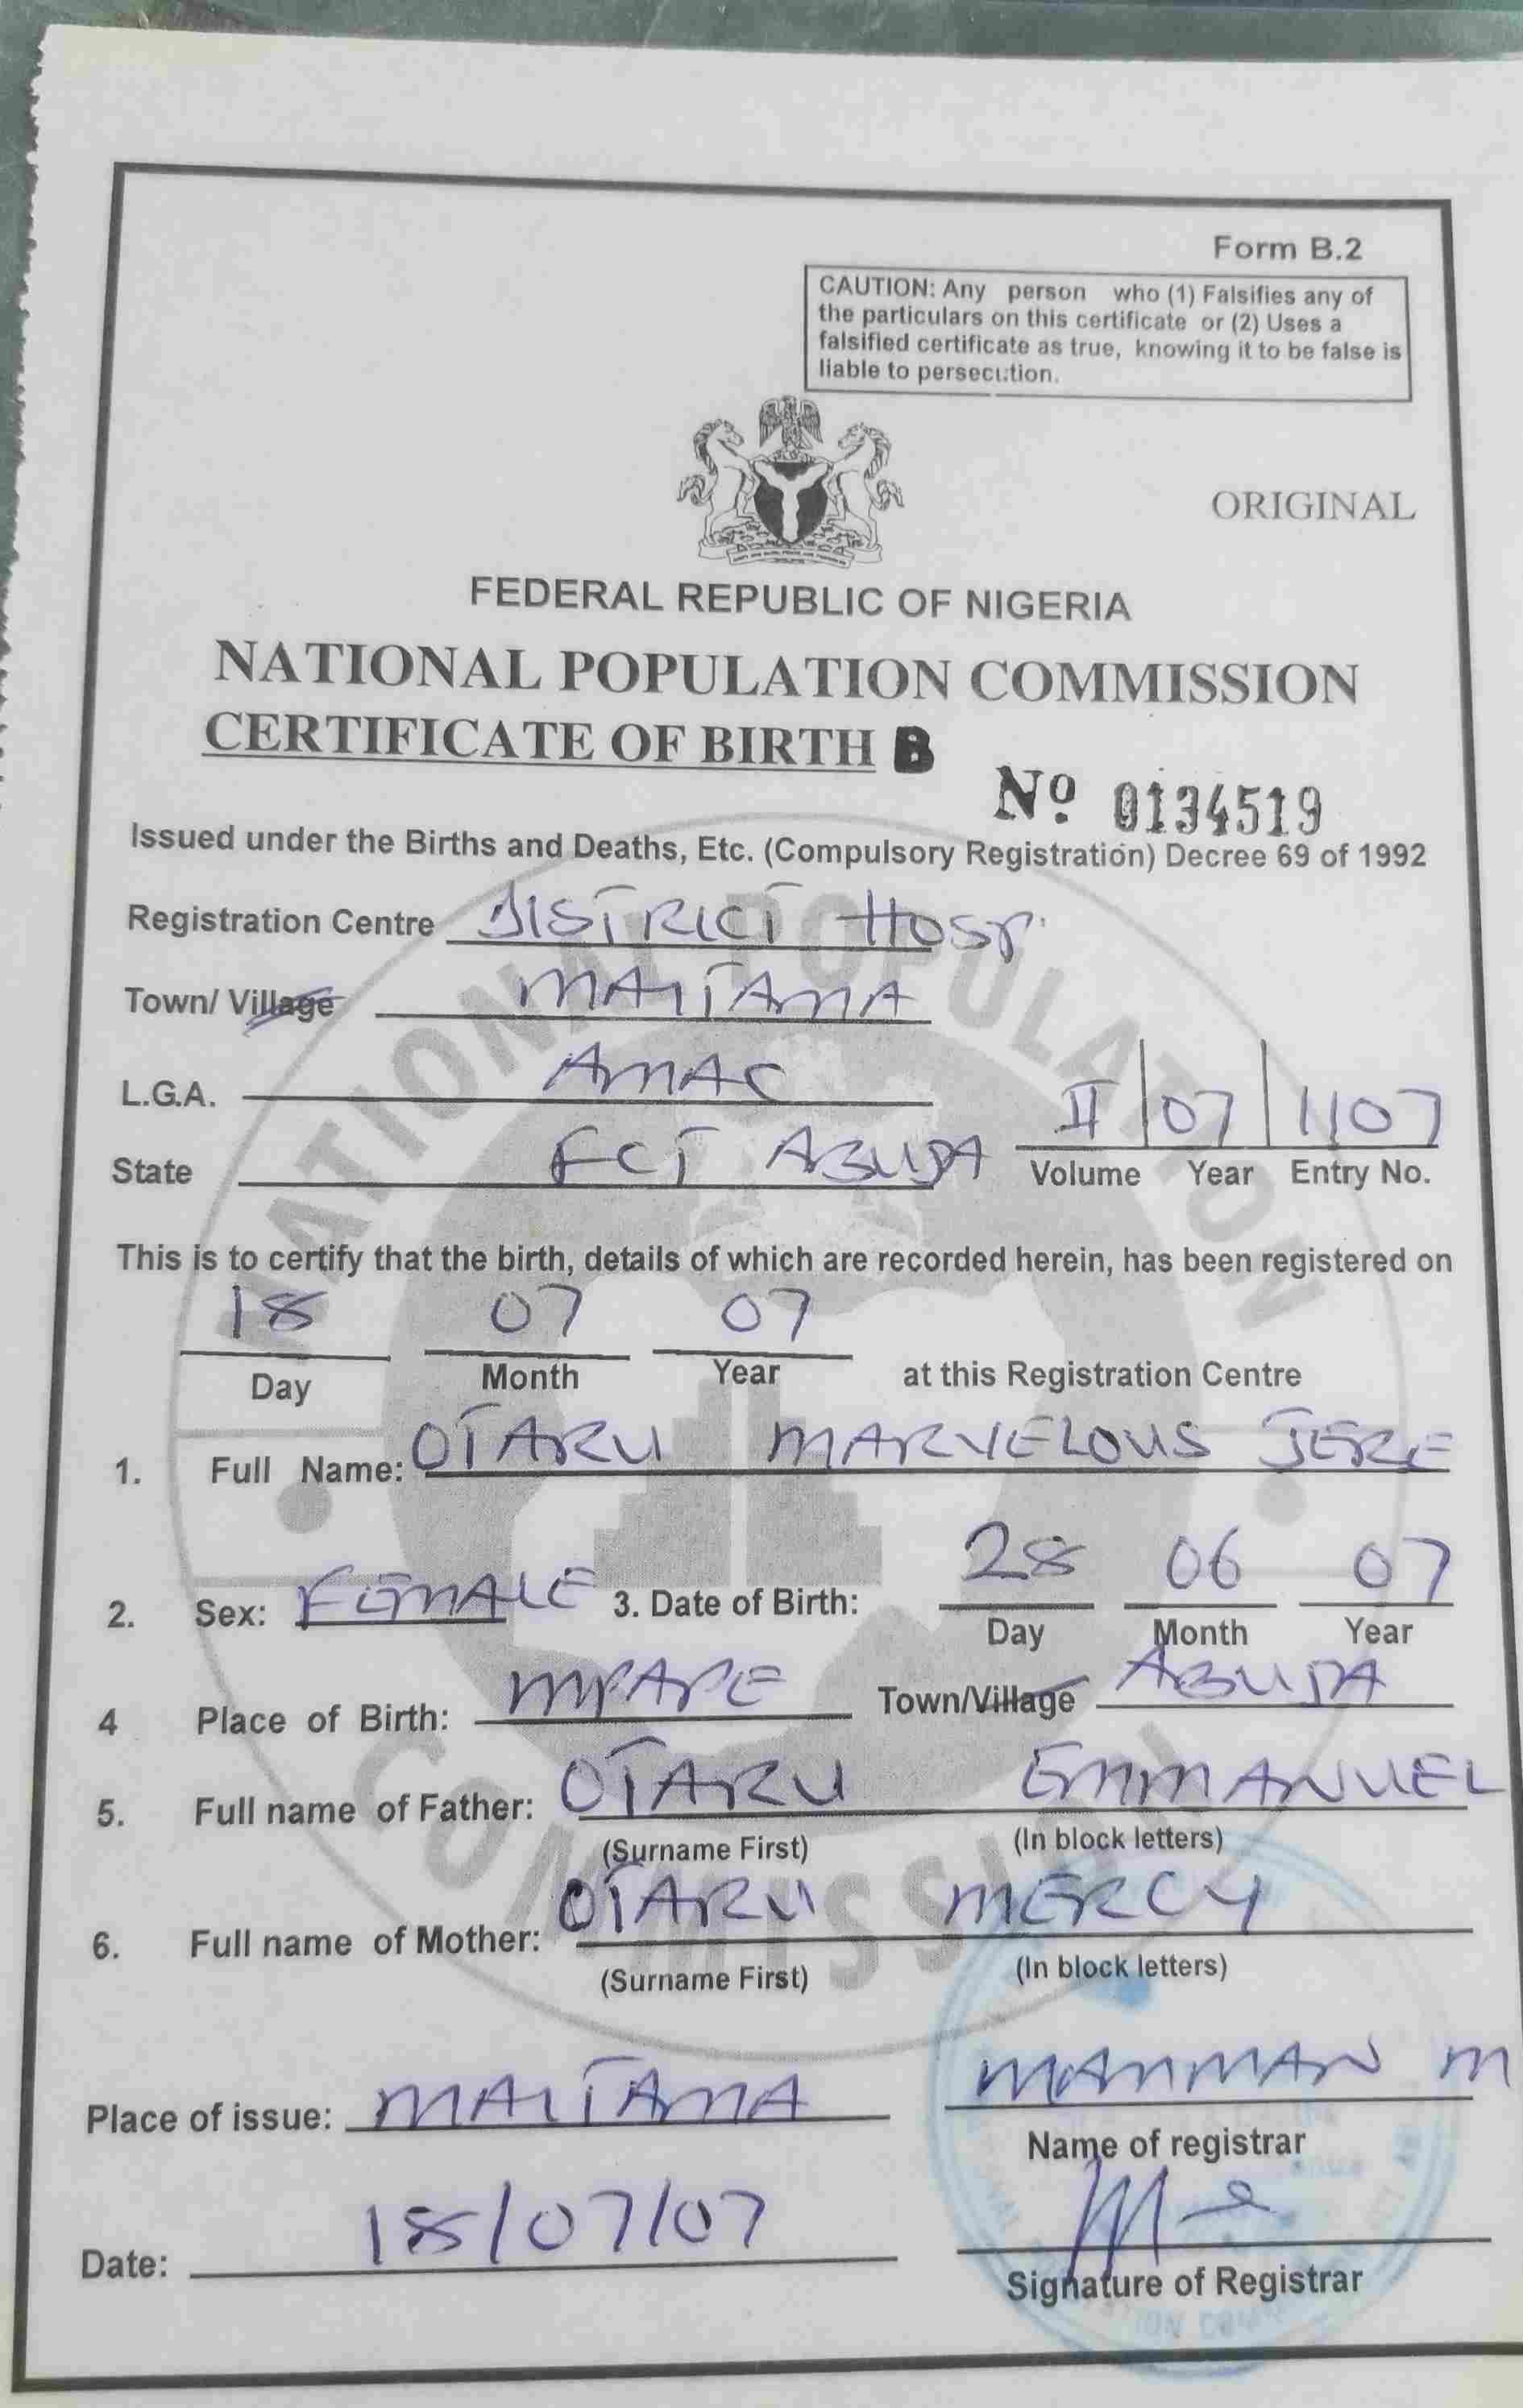 Form B.2
CAUTION: Any person who (1) Falsifies any of
the particulars on this certificate or (2) Uses a
falsified certificate as true, knowing it to be false is
liable to persecution.
ORIGINAL
FEDERAL REPUBLIC OF NIGERIA
NATIONAL POPULATION COMMISSION
CERTIFICATE OF BIRTH B
Nº 0134519
Issued under the Births and Deaths, Etc. (Compulsory Registration) Decree 69 of 1992
Registration Centre DISTRICT HOSP.
Town/ Village MAITAMA
L.G.A. AMAC
State FCT ABUJA
II / 07 / 1107
Volume Year Entry No.
This is to certify that the birth, details of which are recorded herein, has been registered on
18 07 07
Day Month Year at this Registration Centre
1. Full Name: OTARU MARVELOUS JERE
2. Sex: FEMALE 3. Date of Birth: 28 06 07
Day Month Year
4 Place of Birth: MPAPE Town/Village ABUJA
5. Full name of Father: OTARU EMMANUEL
(Surname First) (In block letters)
6. Full name of Mother: OTARU MERCY
(Surname First) (In block letters)
Place of issue: MAITAMA MAMMAN M
Name of registrar
Date: 18/07/07
Signature of Registrar
NATIONAL POPULATION COMMISSION